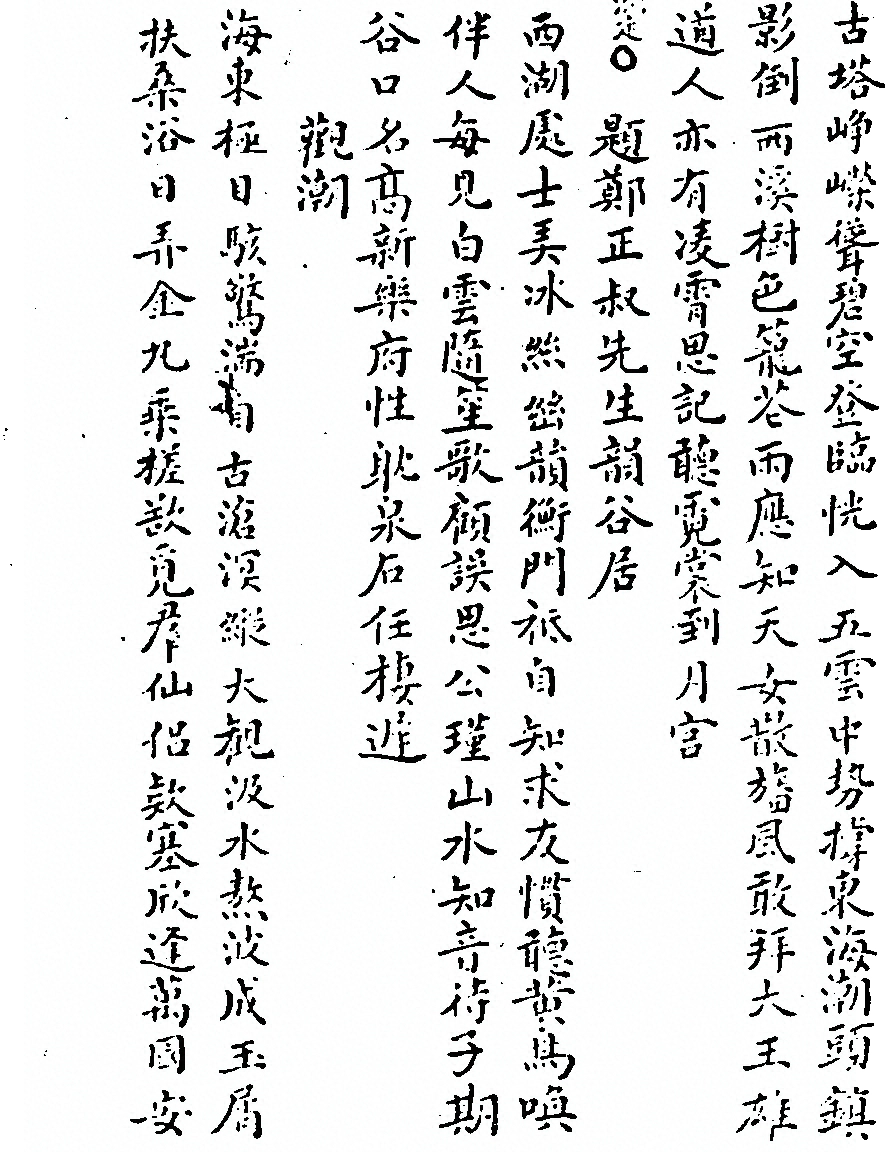 古塔崢嶸聳碧空登臨恍入五雲中勢撐東海潮頭鎮
影倒西溪樹色籠花雨應知天女散旛風敢拜大王雄
道人亦有凌霄思記聽霓裳到月宮
題鄭正叔先生韻谷居
西湖處士美冰絲幽韻衡門祗自知求友慣聽黃鳥喚
伴人每見白雲隨笙歌顧誤思公瑾山水知音待子期
谷口名高新樂府性耽泉石任棲遲
觀潮
海東極日駭驚湍自古滄溟縱大觀汲水熬波成玉屑
扶桑浴日弄金丸乘槎歎覓群仙侶款塞欣逢萬國安